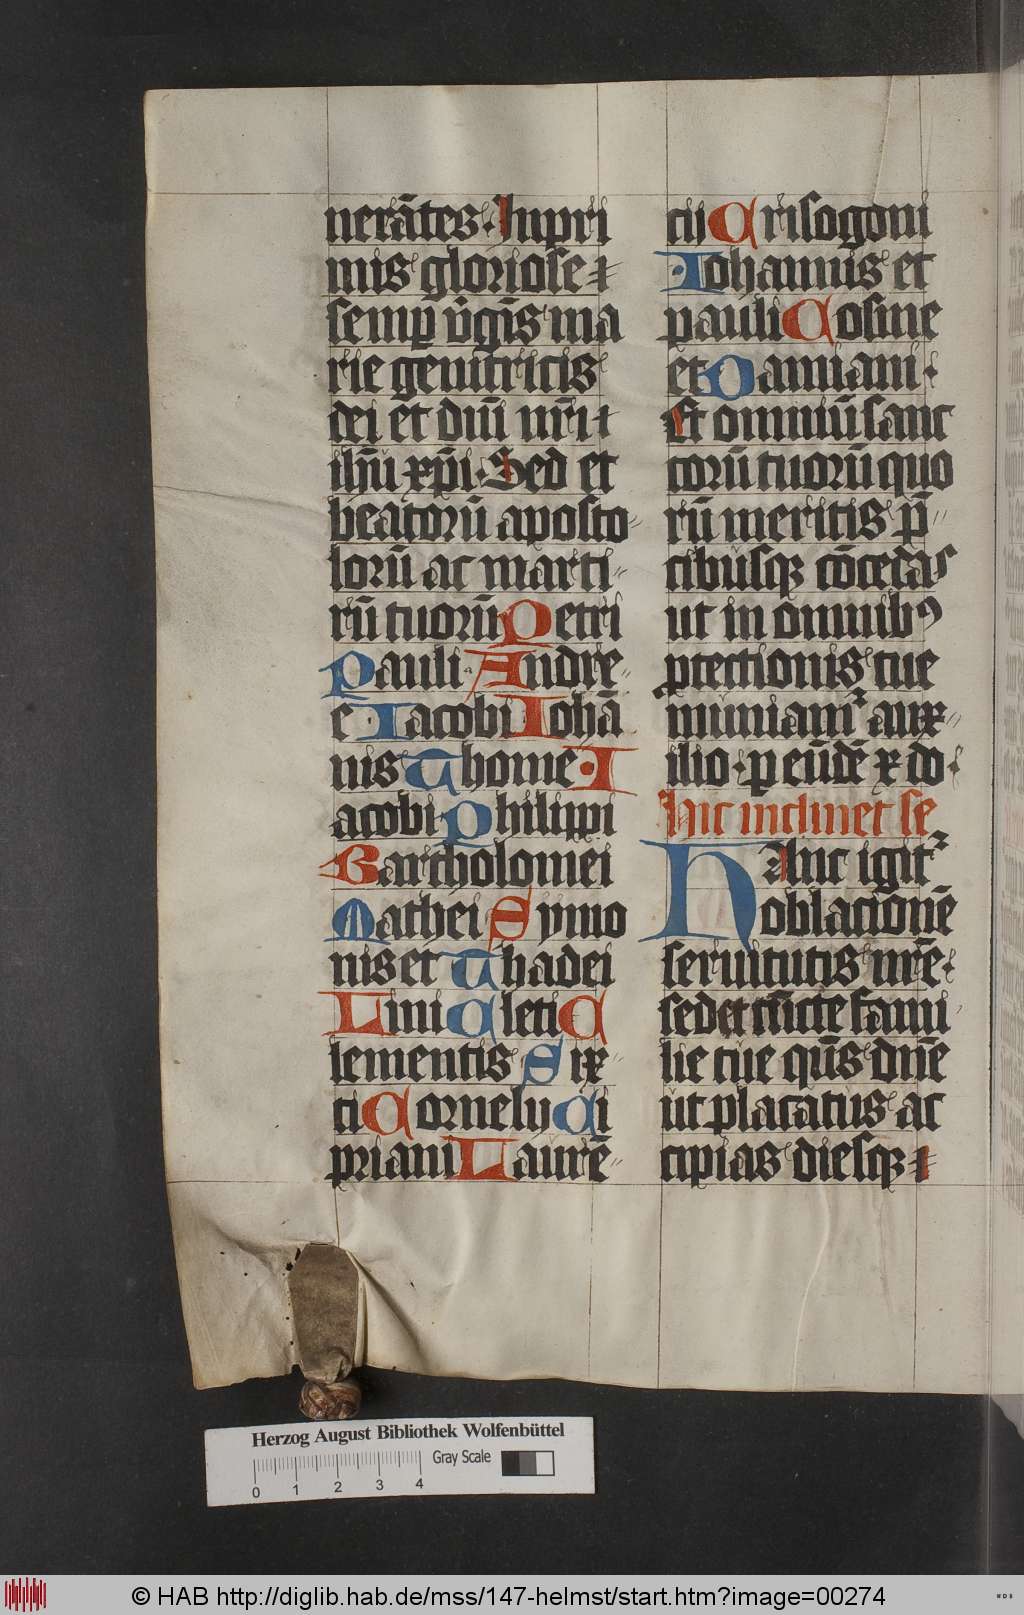 nerātes· Inpri
mis gloriose
semp v̄gīs ma
rie genitricis
dei et dn̄i nr̄i
ih̄u xp̄i· Sed et
beatorū aposto
lorū ac marti
rū tuorū Petri
Pauli Andre
e· Iacobi Iohā
nis Thome· I
acobi Philippi
Bartholomei
Mathei Symo
nis et Thadei
Lini Cleti C
lementis Six
ti Cornelij Ci
priani Laurē
cij Crisogoni
·Iohannis et
pauli Cosme
et Damiani·
Et omniū sanc
torū tuorū quo
rū meritis p̄
cibusqꝫ cōcedas
ut in omnibꝰ
ꝓtectionis tue
muniamˀ aux
ilio· ꝑ eūdē x do
Hic inclinet se
HAnc igitˀ
oblacionē
seruitutis nr̄e·
sed et cūcte fami
lie tue qs̄ dn̄e
ut placatus ac
cipias diesqꝫ
Herzog August Bibliothek Wolfenbüttel
0 1 2 3 4
Gray Scale
© HAB http://diglib.hab.de/mss/147-helmst/start.htm?image=00274